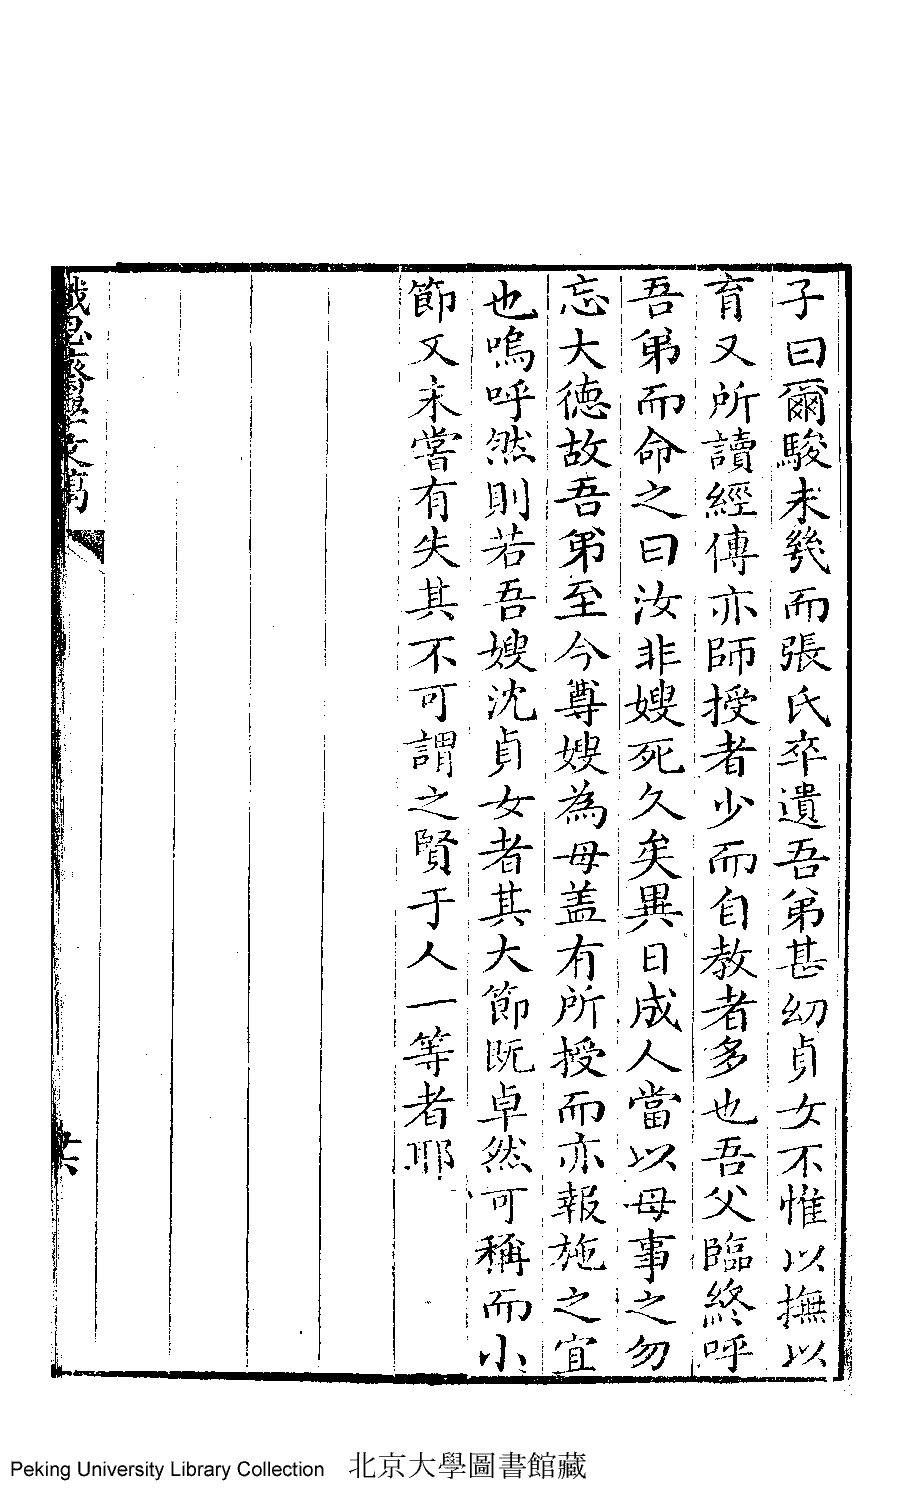 子曰爾駿未幾而張氏卒遺吾弟甚幼貞女不惟以撫以
育又所讀經傳亦師授者少而自教者多也吾父臨終呼
吾弟而命之曰汝非嫂死久矣異日成人當以母事之勿
忘大德故吾弟至今尊嫂為母蓋有所授而亦報施之宜
也嗚呼然則若吾嫂沈貞女者其大節既卓然可稱而小
節又未嘗有失其不可謂之賢于人一等者耶
思齋學文稿
Peking University Library Collection 北京大學圖書館藏